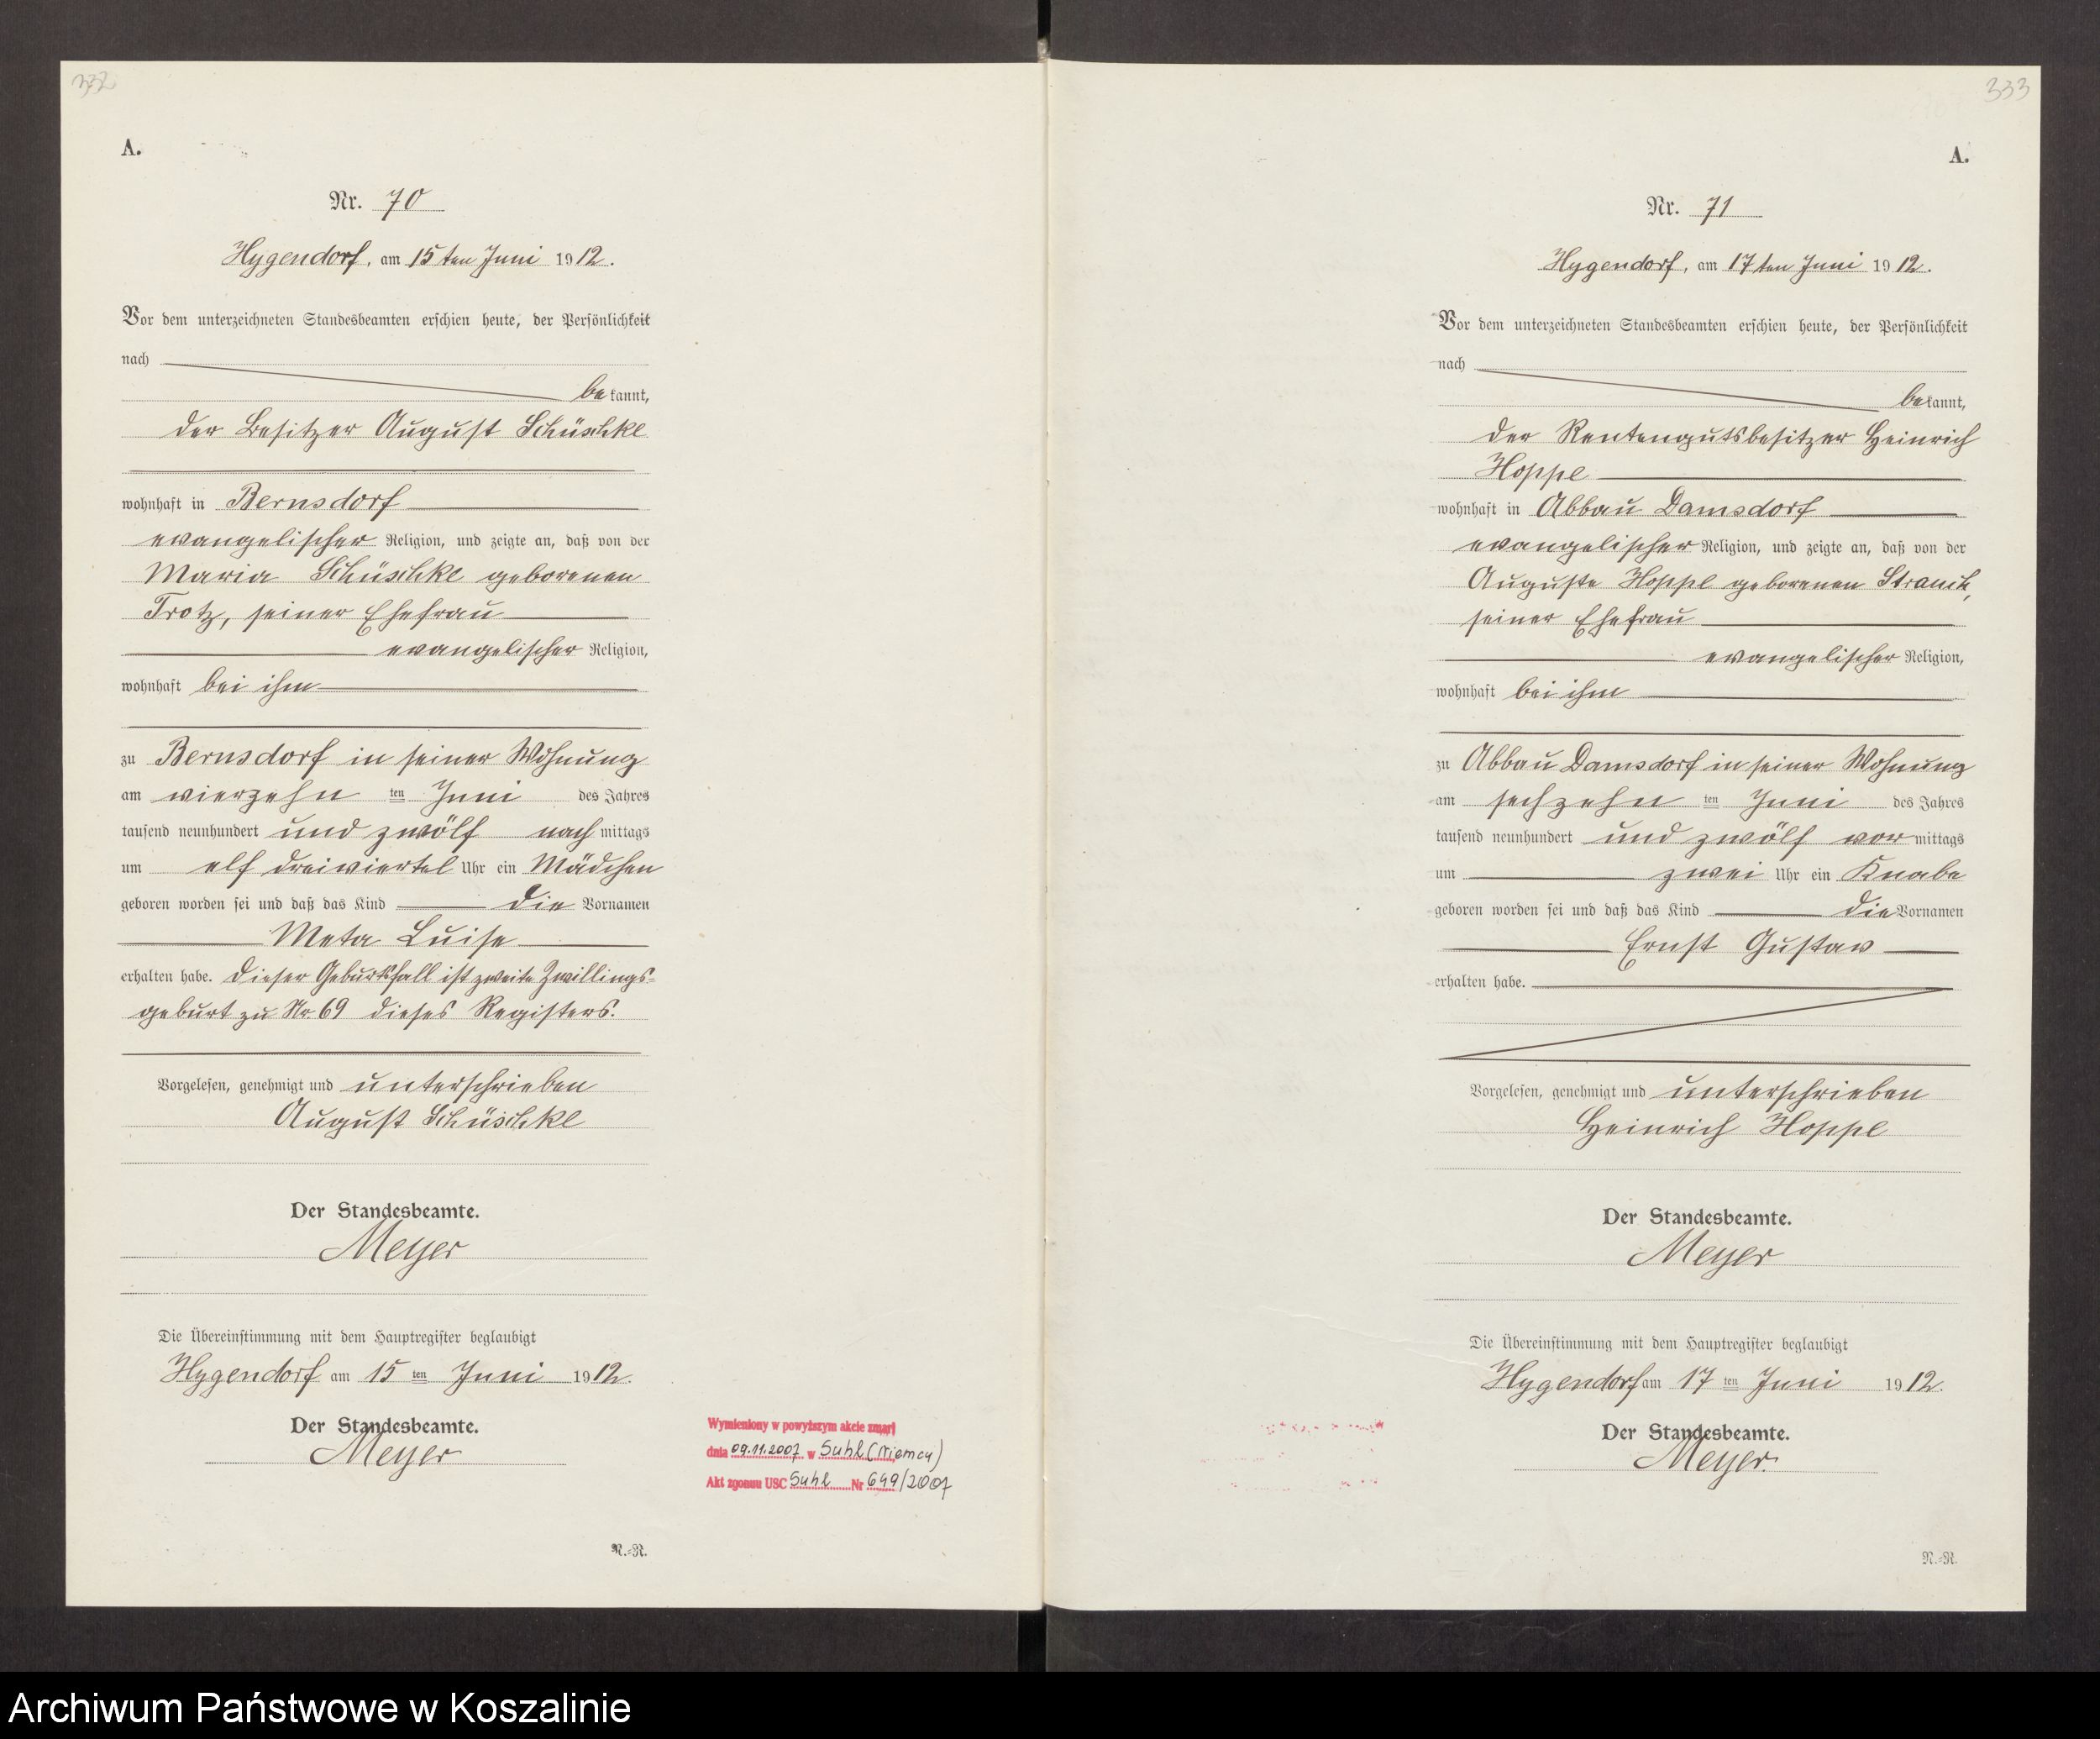 332
A.
Nr. 70
Hygendorf, am 15ten Juni 1912.
Vor dem unterzeichneten Standesbeamten erschien heute, der Persönlichkeit
nach
bekannt,
der Besitzer August Schüschke
wohnhaft in Bernsdorf
evangelischer Religion, und zeigte an, daß von der
Maria Schüschke geborenen
Trotz, seiner Ehefrau
evangelischer Religion,
wohnhaft bei ihm
zu Bernsdorf in seiner Wohnung
am vierzehn ten Juni des Jahres
tausend neunhundert und zwölf nachmittags
um elf dreiviertel Uhr ein Mädchen
geboren worden sei und daß das Kind die Vornamen
Meta Luise
erhalten habe. Dieser Geburtsfall ist zweite Zwillings-
geburt zu Nr. 69 dieses Registers.
Vorgelesen, genehmigt und unterschrieben
August Schüschke
Der Standesbeamte.
Meyer
Die Übereinstimmung mit dem Hauptregister beglaubigt
Hygendorf am 15 ten Juni 1912.
Der Standesbeamte.
Meyer
N.-R.
Wymieniony w powyższym akcie zmarł
dnia 09.11.2007 w Suhl (Niemcy)
Akt zgonu USC Suhl Nr 649/2007
333
A.
Nr. 71
Hygendorf, am 17ten Juni 1912.
Vor dem unterzeichneten Standesbeamten erschien heute, der Persönlichkeit
nach
bekannt,
der Rentengutsbesitzer Heinrich
Hoppe
wohnhaft in Abbau Damsdorf
evangelischer Religion, und zeigte an, daß von der
Auguste Hoppe geborenen Strauch,
seiner Ehefrau
evangelischer Religion,
wohnhaft bei ihm
zu Abbau Damsdorf in seiner Wohnung
am sechzehn ten Juni des Jahres
tausend neunhundert und zwölf vormittags
um zwei Uhr ein Knabe
geboren worden sei und daß das Kind die Vornamen
Ernst Gustav
erhalten habe.
Vorgelesen, genehmigt und unterschrieben
Heinrich Hoppe
Der Standesbeamte.
Meyer
Die Übereinstimmung mit dem Hauptregister beglaubigt
Hygendorf am 17 ten Juni 1912.
Der Standesbeamte.
Meyer.
N.-R.
Archiwum Państwowe w Koszalinie